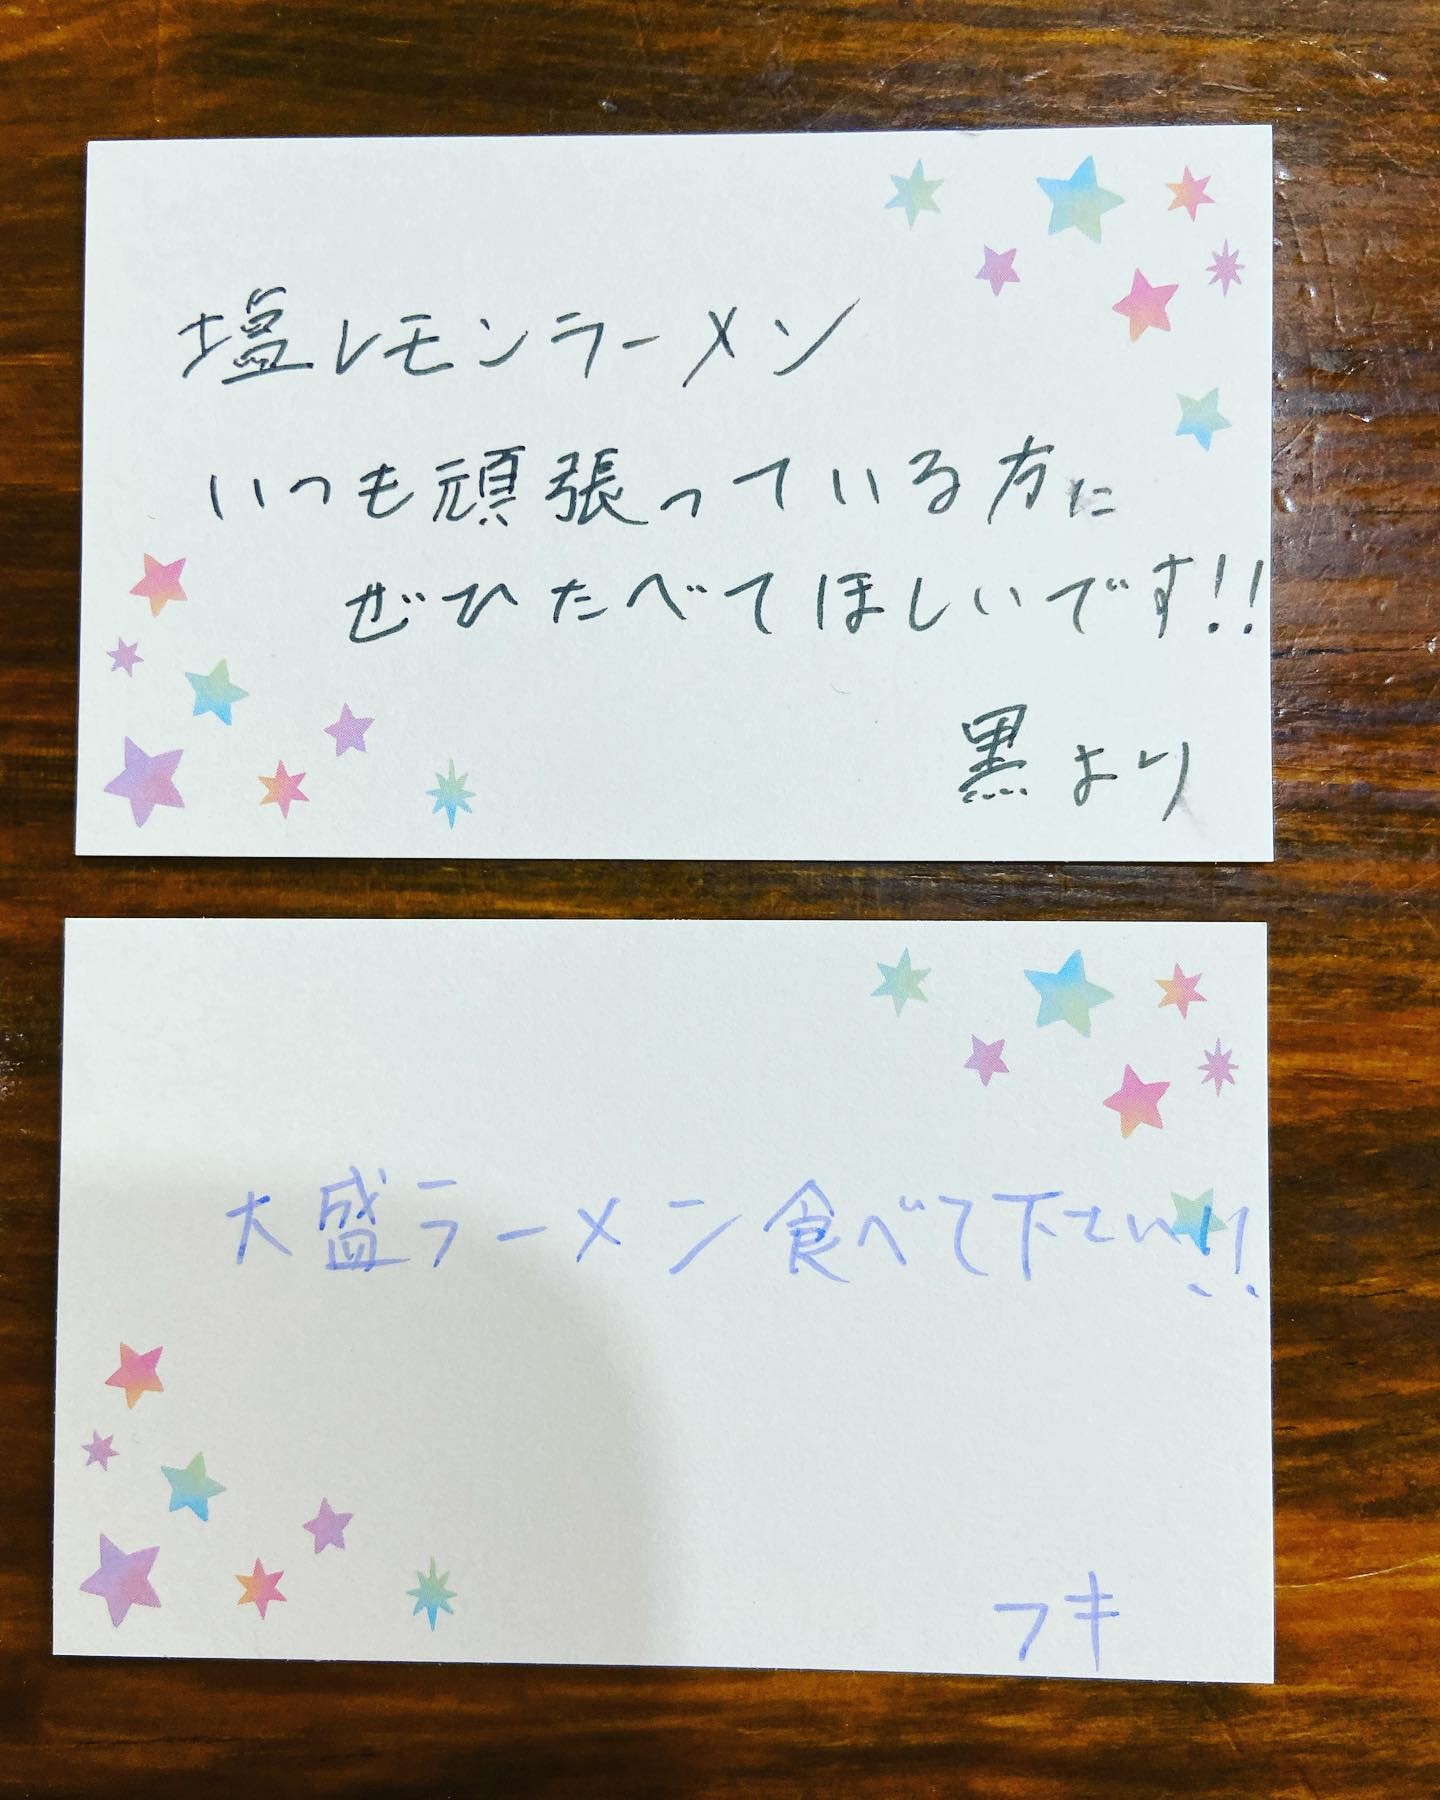 塩レモンラーメン
いつも頑張っている方に
ぜひたべてほしいです!!
黒より
大盛ラーメン食べて下さい!!
フキ